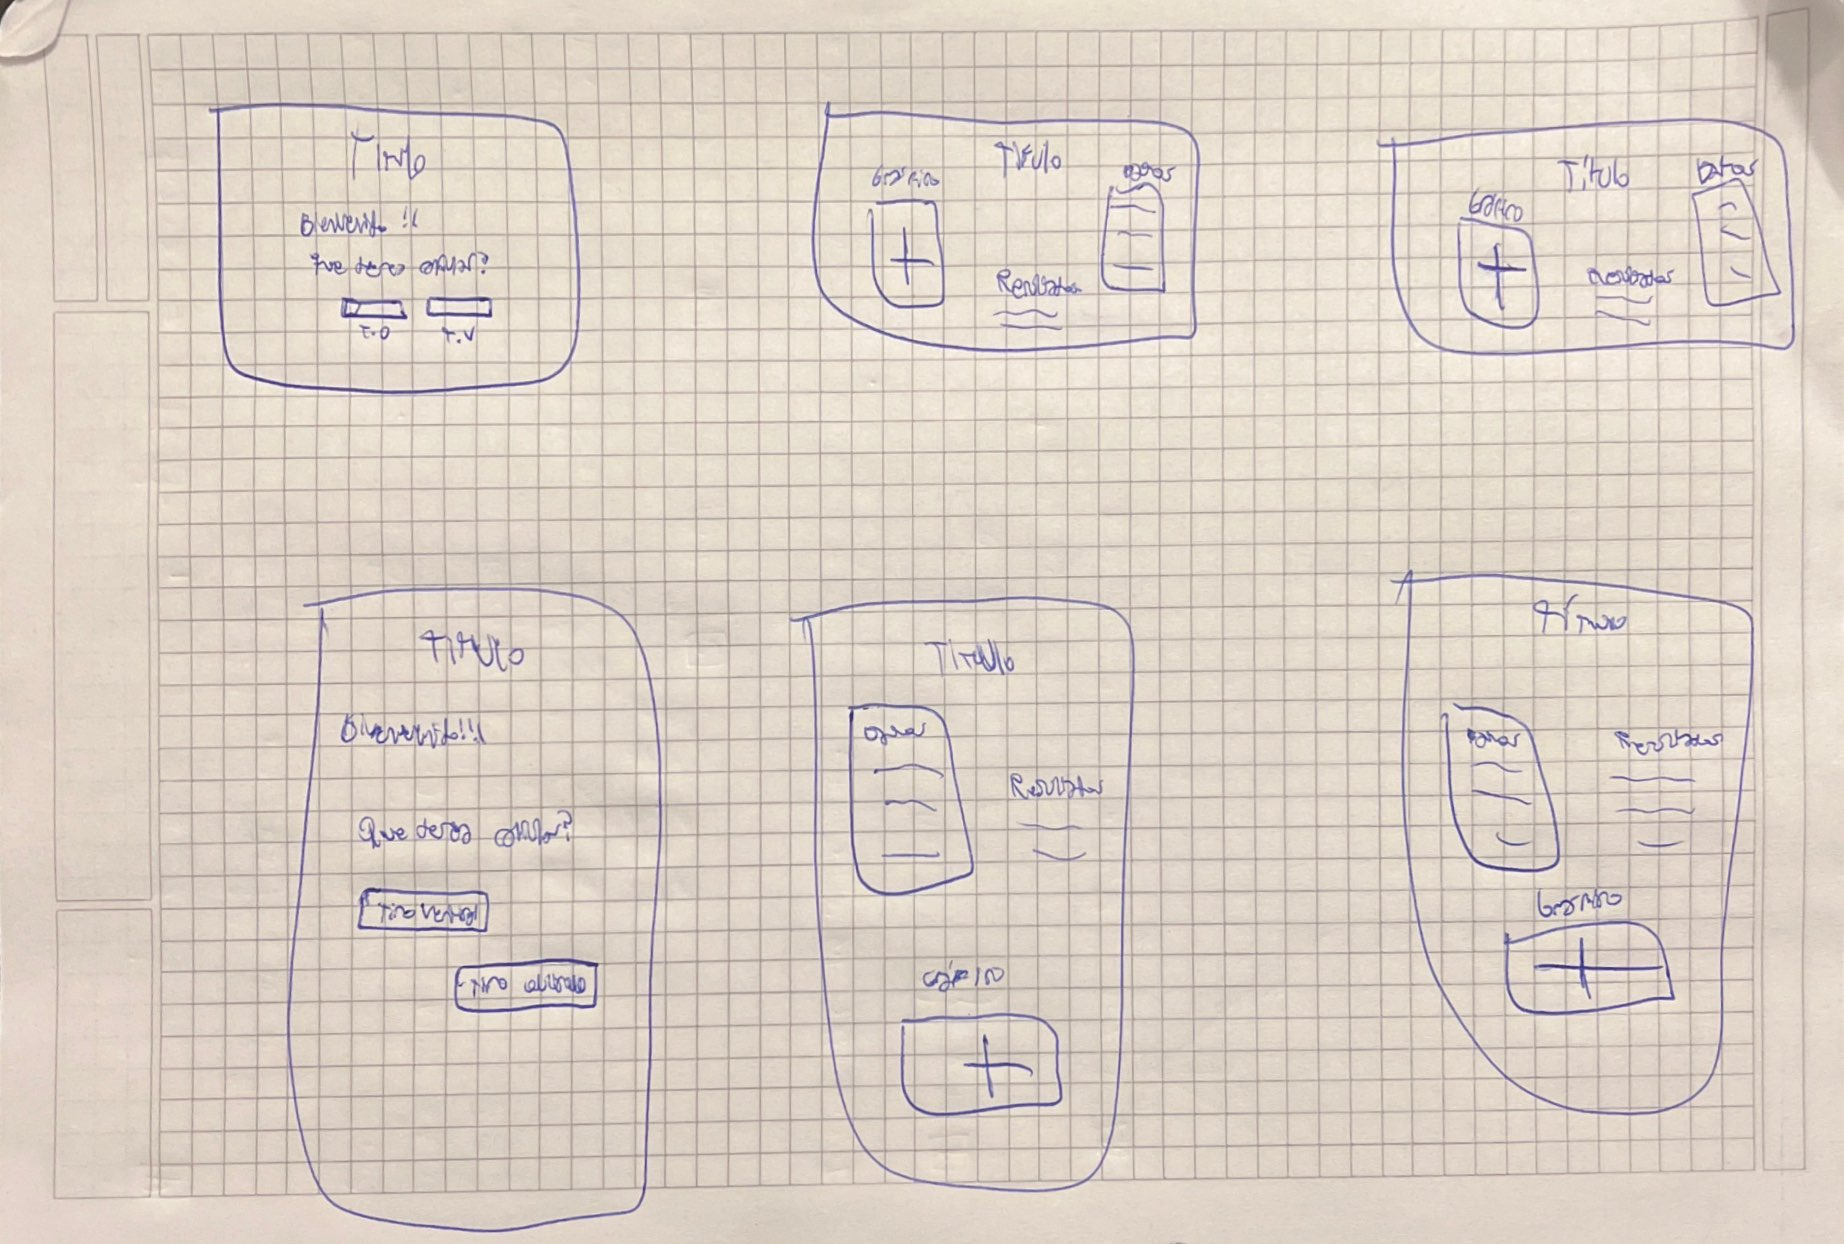 Titulo
Bienvenido !!
Que desea calcular?
T.O
T.V
Titulo
Gráfico
Datos
Resultados
Título
Datos
Gráfico
Resultados
Titulo
Bienvenido!!!
Que desea calcular?
Tiro vertical
Tiro oblicuo
Titulo
Datos
Resultados
Gráfico
Título
Datos
Resultados
Gráfico